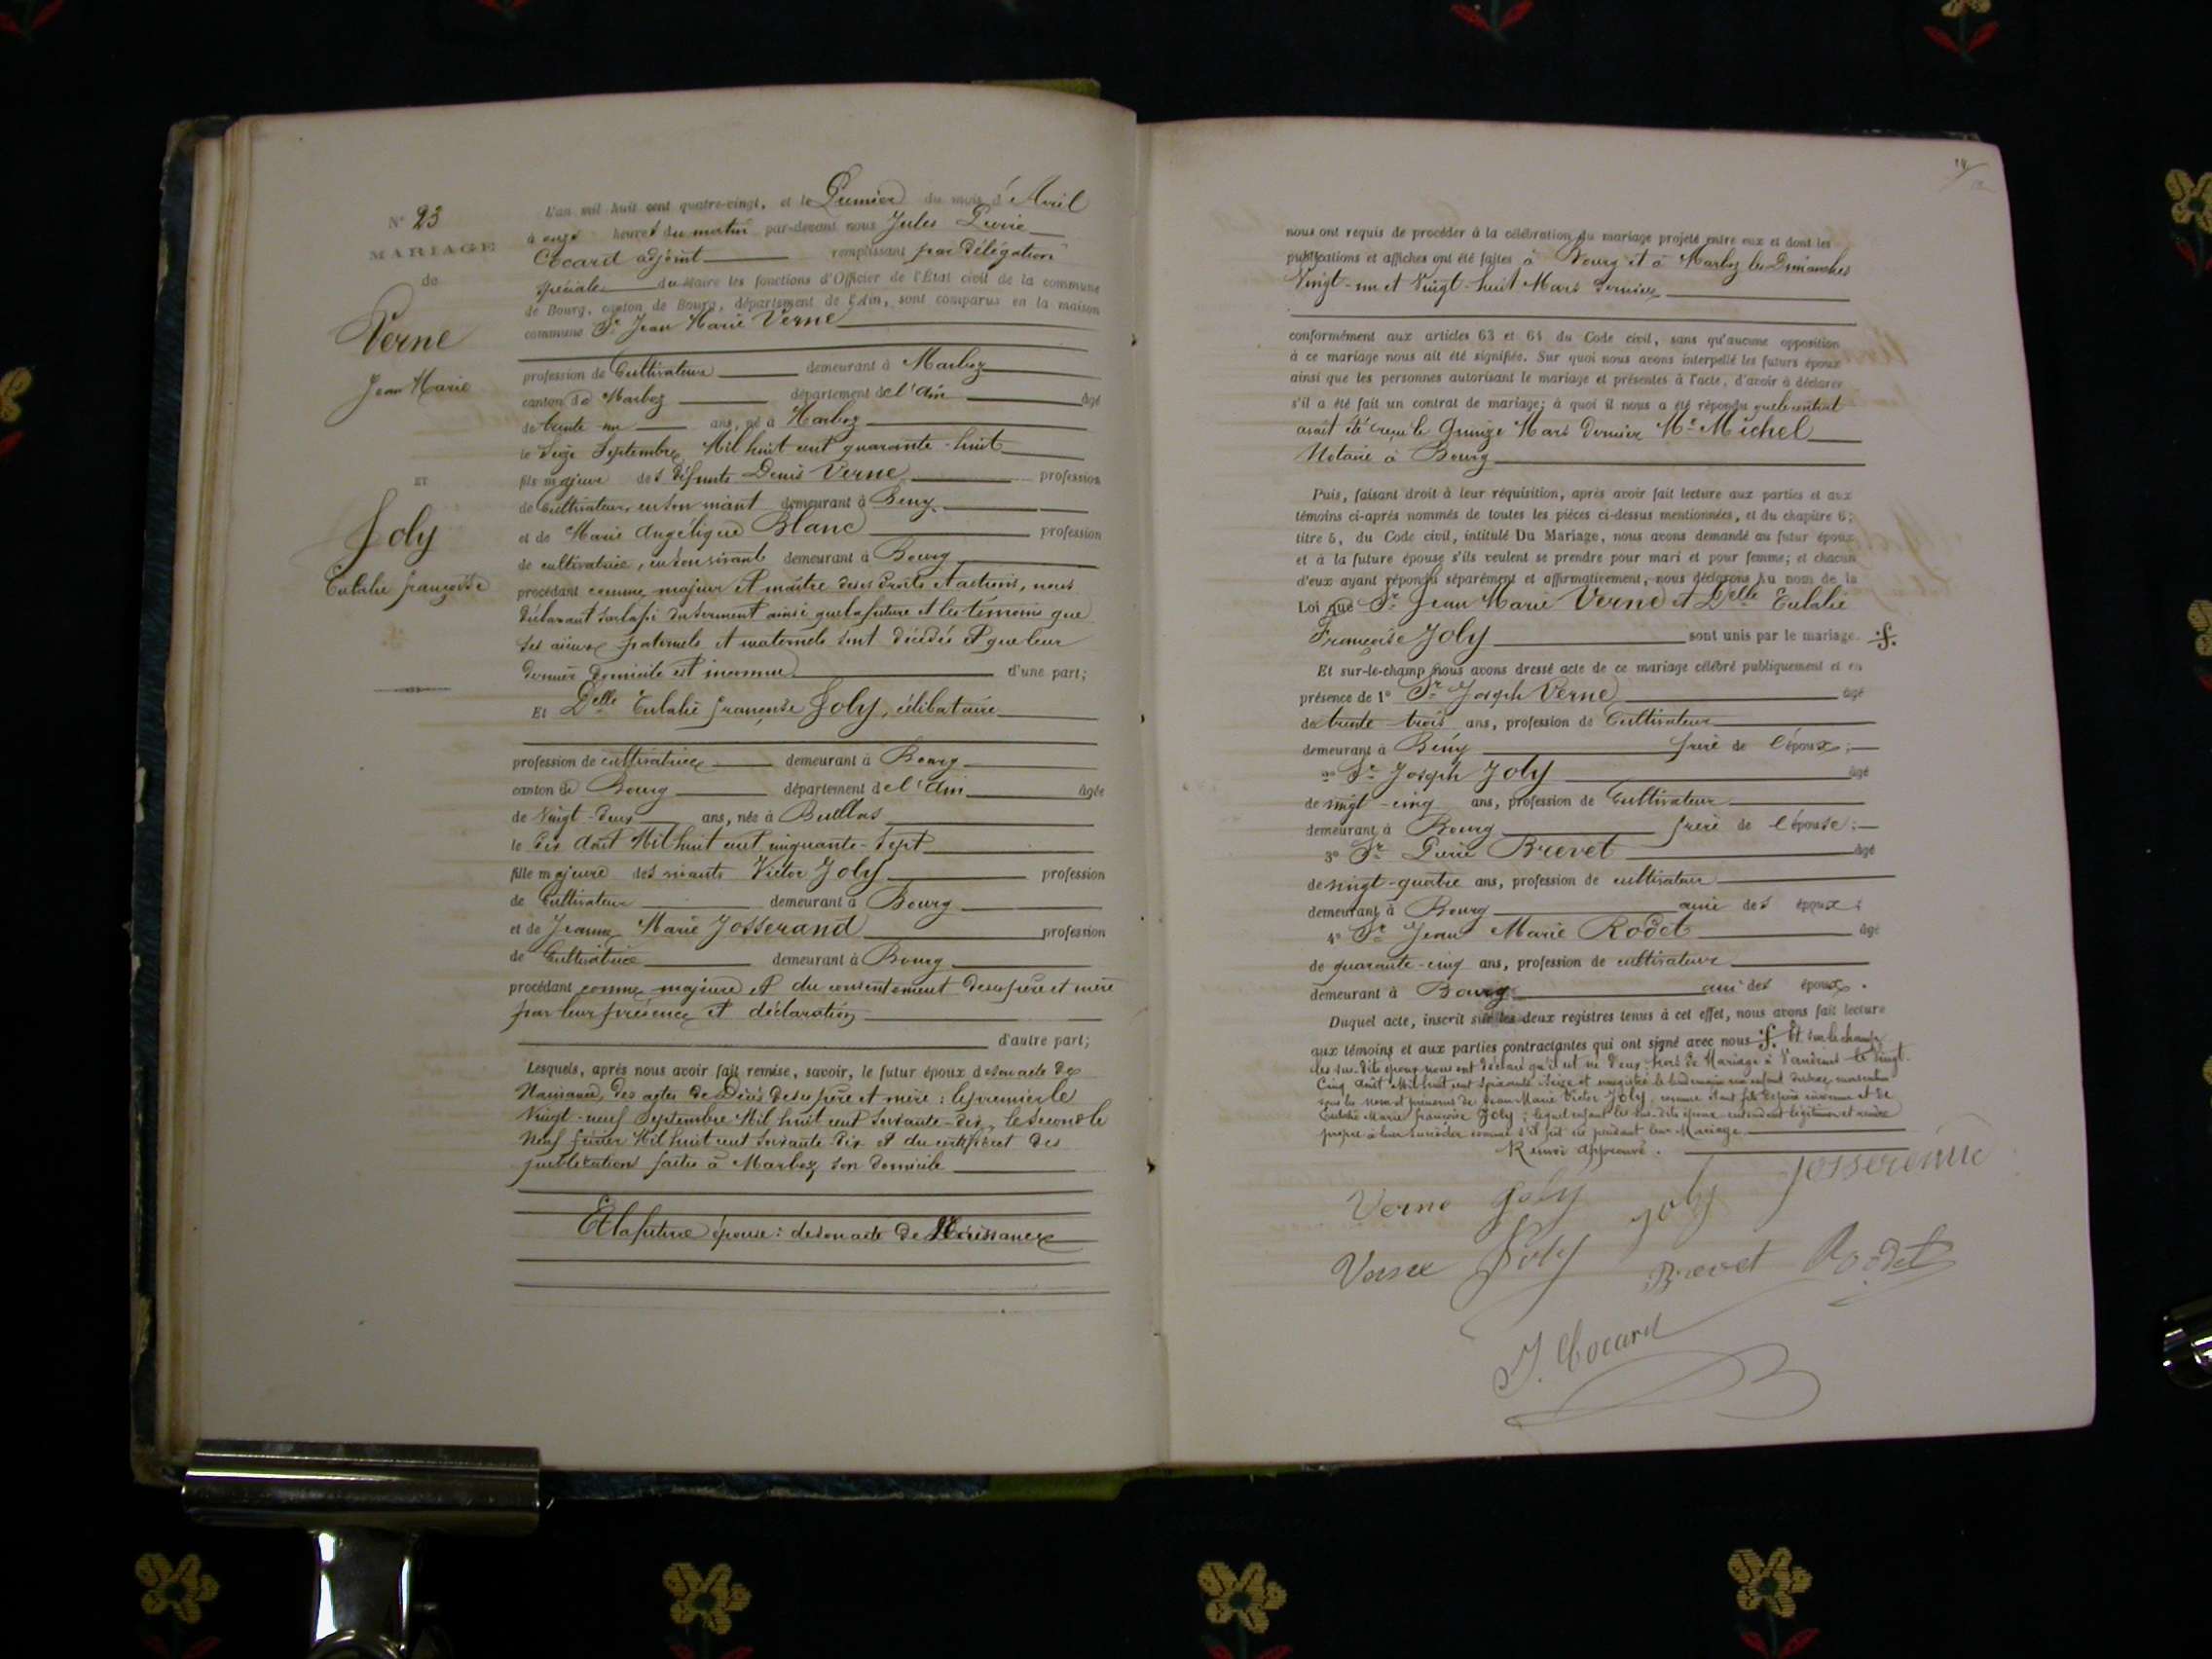 N° 23
MARIAGE
de
Verne
Jean Marie
ET
Joly
Eulalie françoise
L'an mil huit cent quatre-vingt, et le Premier du mois d'Avril
à onze heures du matin par-devant nous Jules Pierre
Cocard adjoint remplissant par délégation
spéciale du Maire les fonctions d'Officier de l'État civil de la commune
de Bourg, canton de Bourg, département de l'Ain, sont comparus en la maison
commune Sr Jean Marie Verne
profession de Cultivateur demeurant à Marboz
canton de Marboz département de l'Ain âgé
de trente-un ans, né à Marboz
le Seize Septembre Mil huit cent quarante-huit
fils majeur des défunts Denis Verne profession
de Cultivateur en son vivant demeurant à Beny
et de Marie Angélique Blanc profession
de cultivatrice, en son vivant demeurant à Bourg
procédant comme majeur et maître de ses droits et actions, nous
déclarant sur la foi du serment ainsi que la future et les témoins que
ses aieux paternels et maternels sont décédés et que leur
dernier domicile est inconnu d'une part;
Et Delle Eulalie françoise Joly, célibataire
profession de cultivatrice demeurant à Bourg
canton de Bourg département de l'Ain âgée
de Vingt-deux ans, née à Buellas
le dix Août Mil huit cent cinquante-sept
fille majeure des vivants Victor Joly profession
de Cultivateur demeurant à Bourg
et de Jeanne Marie Josserand profession
de Cultivatrice demeurant à Bourg
procédant comme majeure et du consentement de ses père et mère
par leur présence et déclaration
d'autre part;
Lesquels, après nous avoir fait remise, savoir, le futur époux de son acte de
Naissance, des actes de Décès de ses père et mère : le premier le
Vingt-neuf Septembre Mil huit cent soixante-dix, le second le
Neuf février Mil huit cent soixante-dix et du certificat des
publications faites à Marboz son domicile
Et la future épouse : de son acte de Naissance
nous ont requis de procéder à la célébration du mariage projeté entre eux et dont les
publications et affiches ont été faites à Bourg et à Marboz les Dimanches
Vingt-un et Vingt-huit Mars dernier
conformément aux articles 63 et 64 du Code civil, sans qu'aucune opposition
à ce mariage nous ait été signifiée. Sur quoi nous avons interpellé les futurs époux
ainsi que les personnes autorisant le mariage et présentes à l'acte, d'avoir à déclarer
s'il a été fait un contrat de mariage; à quoi il nous a été répondu que le contrat
avait été reçu le Quinze Mars dernier Me Michel
Notaire à Bourg
Puis, faisant droit à leur réquisition, après avoir fait lecture aux parties et aux
témoins ci-après nommés de toutes les pièces ci-dessus mentionnées, et du chapitre 6;
titre 5, du Code civil, intitulé Du Mariage, nous avons demandé au futur époux
et à la future épouse s'ils veulent se prendre pour mari et pour femme; et chacun
d'eux ayant répondu séparément et affirmativement, nous déclarons au nom de la
Loi que Sr Jean Marie Verne et Delle Eulalie
Françoise Joly sont unis par le mariage.
Et sur-le-champ nous avons dressé acte de ce mariage célébré publiquement et en
présence de 1° Sr Joseph Verne âgé
de trente-trois ans, profession de Cultivateur
demeurant à Bény frère de l'époux;
2° Sr Joseph Joly âgé
de vingt-cinq ans, profession de Cultivateur
demeurant à Bourg frère de l'épouse;
3° Sr Pierre Brevet âgé
de vingt-quatre ans, profession de cultivateur
demeurant à Bourg ami des époux;
4° Sr Jean Marie Rodet âgé
de quarante-cinq ans, profession de cultivateur
demeurant à Bourg ami des époux.
Duquel acte, inscrit sur les deux registres tenus à cet effet, nous avons fait lecture
aux témoins et aux parties contractantes qui ont signé avec nous Et sur le champ
les sus-dits époux nous ont déclaré qu'il est né d'eux hors de Mariage à le Vingt
Cinq Août Mil huit cent soixante Seize et enregistré le lendemain un enfant du sexe masculin
sous les nom et prénoms de Jean Marie Victor Joly, comme étant fils de père inconnu et de
Eulalie Marie françoise Joly; lequel enfant les sus-dits époux entendent légitimer et rendre
propre à leur succéder comme s'il fût né pendant leur Mariage
Renvoi approuvé.
Verne Joly Joly
Verne Joly Brevet Rodet
J. Cocard